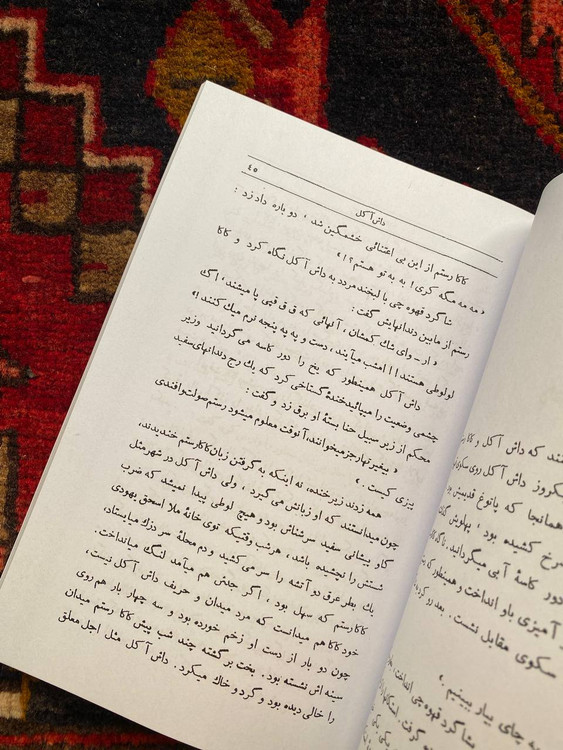 ٤٥
داش آکل
کاکا رستم از این بی اعتنائی خشمگین شد ، دو باره داد زد :
« مه مه مگه کری! به به تو هستم؟! »
شاگرد قهوه چی با لبخند مردد به داش آکل نگاه کرد و کاکا
رستم از مابین دندانهایش گفت :
« ار ـ وای شك کمشان ، آنهائی که ق ق قپی پا میشند ، اگ
لولوطی هستند !!! امشب میآیند ، دست و په په پنجه نرم میك کنند !»
داش آکل همینطور که یخ را دور کاسه می گردانید وزیر
چشمی وضعیت را میپائید خندهٔ گستاخی کرد که یك رج دندانهای سفید
محکم از زیر سبیل حنا بستهٔ او برق زد و گفت :
« بیغیرتها رجز میخوانند، آنوقت معلوم میشود رستم صولت و افندی
پیزی کیست . »
همه زدند زیر خنده، نه اینکه به گرفتن زبان کاکا رستم خندیدند،
چون میدانستند که او زبانش می گیرد ، ولی داش آکل در شهر مثل
گاو پیشانی سفید سرشناس بود و هیچ لوطی پیدا نمیشد که ضرب
شستش را نچشیده باشد ، هر شب وقتیکه توی خانهٔ ملا اسحق یهودی
یك بطر عرق دو آتشه را سر می کشید و دم محلهٔ سر دزك میایستاد،
کاکا رستم که سهل بود ، اگر جدش هم میآمد لنگ میانداخت.
خود کاکا هم میدانست که مرد میدان و حریف داش آکل نیست،
چون دو بار از دست او زخم خورده بود و سه چهار بار هم روی
سینه اش نشسته بود. بخت برگشته چند شب پیش کاکا رستم میدان
را خالی دیده بود و گرد و خاك میکرد. داش آکل مثل اجل معلق
ند که داش آکل و کاکا
یکروز داش آکل روی سکوی
همانجا که پاتوغ قدیمیش بود
رخ کشیده بود ، پهلویش
دور کاسهٔ آبی میگردانید، ناگاه
آمیزی باو انداخت و همینطور که
سکوی مقابل نشست . بعد رو کرد
ه چای بیار ببینیم . »
شاگرد قهوه چی انداخت،
گرفت.